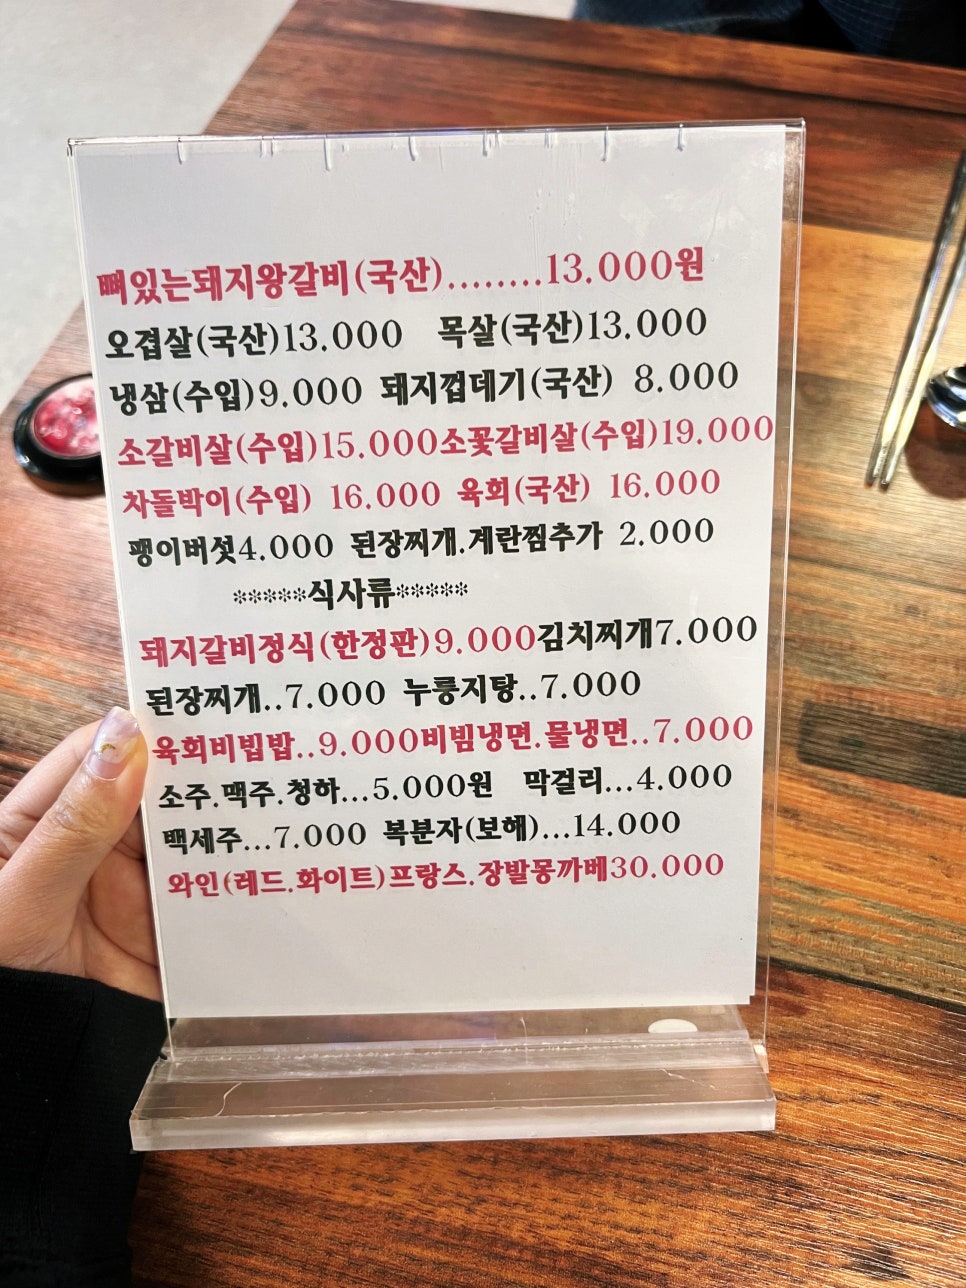 뼈있는돼지왕갈비(국산)........13.000원
오겹살(국산)13.000 목살(국산)13.000
냉삼(수입)9.000 돼지껍데기(국산) 8.000
소갈비살(수입)15.000소꽃갈비살(수입)19.000
차돌박이(수입) 16.000 육회(국산) 16.000
팽이버섯4.000 된장찌개.계란찜추가 2.000
*****식사류*****
돼지갈비정식(한정판)9.000김치찌개7.000
된장찌개..7.000 누룽지탕..7.000
육회비빕밥..9.000비빔냉면.물냉면..7.000
소주.맥주.청하...5.000원 막걸리...4.000
백세주...7.000 복분자(보해)...14.000
와인(레드.화이트)프랑스.장발몽까베30.000